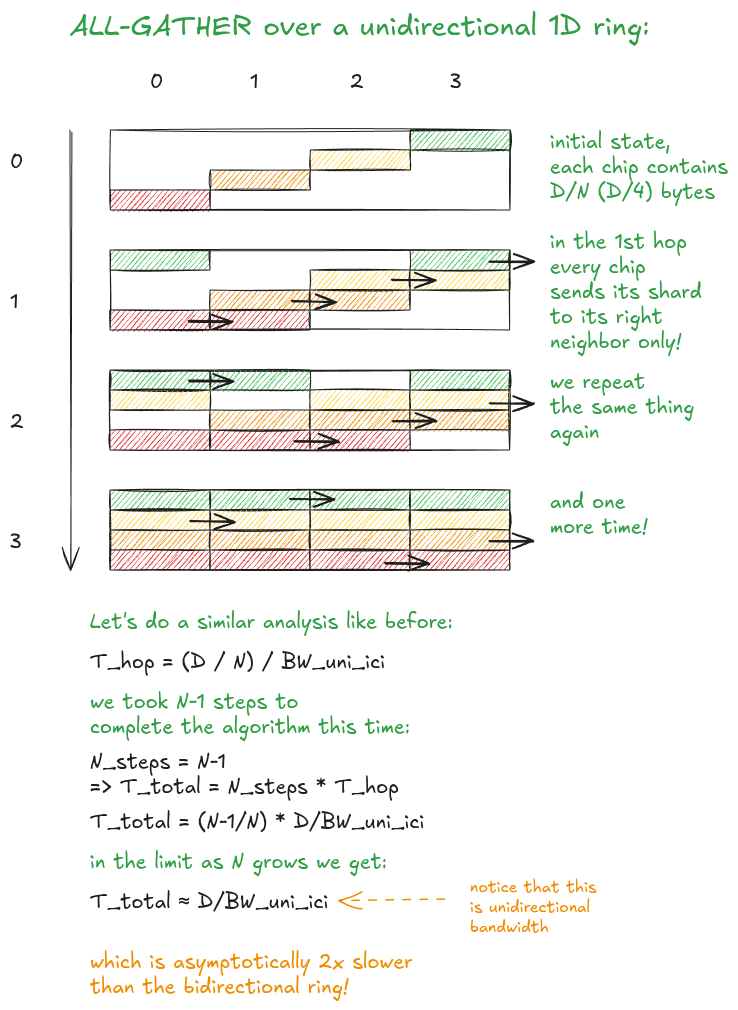 ALL-GATHER over a unidirectional 1D ring:
0 1 2 3
0
initial state,
each chip contains
D/N (D/4) bytes
1
in the 1st hop
every chip
sends its shard
to its right
neighbor only!
2
we repeat
the same thing
again
3
and one
more time!
Let's do a similar analysis like before:
T_hop = (D / N) / BW_uni_ici
we took N-1 steps to
complete the algorithm this time:
N_steps = N-1
=> T_total = N_steps * T_hop
T_total = (N-1/N) * D/BW_uni_ici
in the limit as N grows we get:
T_total ≈ D/BW_uni_ici
notice that this
is unidirectional
bandwidth
which is asymptotically 2x slower
than the bidirectional ring!